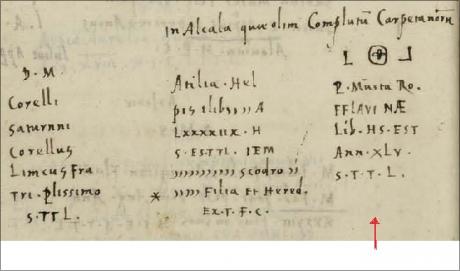 in Alcala quae olim Complutũ Carpetanorũ
D. M
Corelli
Saturnni
Corellus
Limcus Fra
Tri. plissimo
S. TTL.
Atilia. Hel
pis ilibs )) A
LXXXXIIX. H
S. ESTTL. IEM
scodro
Filia Et Hered.
Ex. T. F. C.
L L
P. Musta Ro.
FFLAVI NÆ
Lib. HS. EST
Ann. XLV.
S. T. T. L.